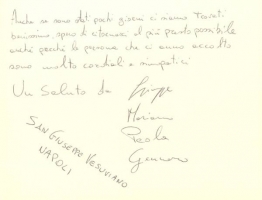 Anche se sono stati pochi giorni ci siamo trovati
benissimo, spero di ritornarci al più presto possibile
anche perché le persone che ci anno accolto
sono molto cordiali e simpatici
Un Saluto da
Mariano
Paola
Gennaro
SAN GIUSEPPE VESUVIANO
NAPOLI